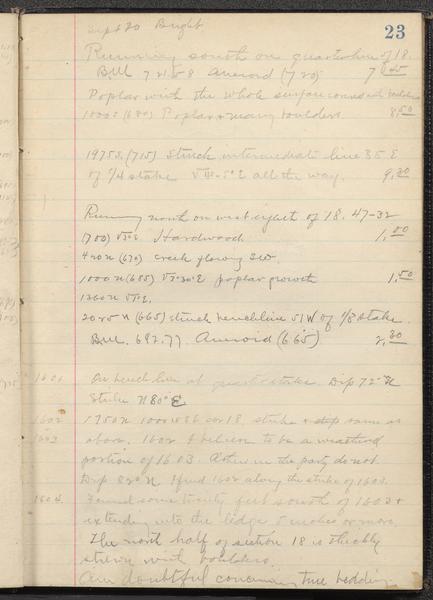 23
Sept 20 Bright
Running south on quarterline of 18.
B.M. 721.58 Aneroid (720) 7
Poplar with the whole surface covered
1000 S (680) Poplar + many boulders 8.50
1975 S. (715) Struck intermediate line 35 E
of 1/4 stake V 5° E all the way. 9.30
Running north on west eighth of 18. 47-32
(700) V 3° E. Hardwood 1.00
420 N (670) creek flowing SW.
1000 N (655) V 3°30' E poplar growth 1.50
1260 N V 5° E.
2025 N (665) struck benchline 51 W of 1/8 stake.
B.M. 692.77. Aneroid (665) 2.30
1601 On benchline at quarter stake. Dip 72° N
Strike N 80° E
1602 1750 N 1000 W 18, strike + dip same as
1603 above. 1602 I believe to be a weathered
portion of 1603. Others in the party do not.
Dip 80° N I find 1602 along the strike of 1603.
1604 Found some twenty feet south of 1603 +
extending into the ledge 5 inches or more.
The north half of section 18 is thickly
strewn with boulders.
Am doubtful concerning true bedding